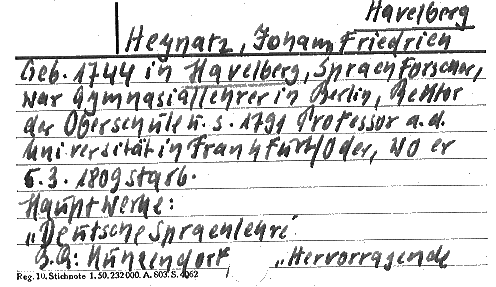 Havelberg
Heynatz, Johann Friedrich
Geb. 1744 in Havelberg, Sprachforscher,
war Gymnasiallehrer in Berlin, Rektor
der Oberschule u. s. 1791 Professor a. d.
Universität in Frankfurt/Oder, wo er
5.3.1809 starb.
Hauptwerke:
„Deutsche Sprachlehre"
B.B: Hünnendorf, „Hervorragende
Reg. 10. Stichnote 1. 50. 232000. A. 803. S. 4062